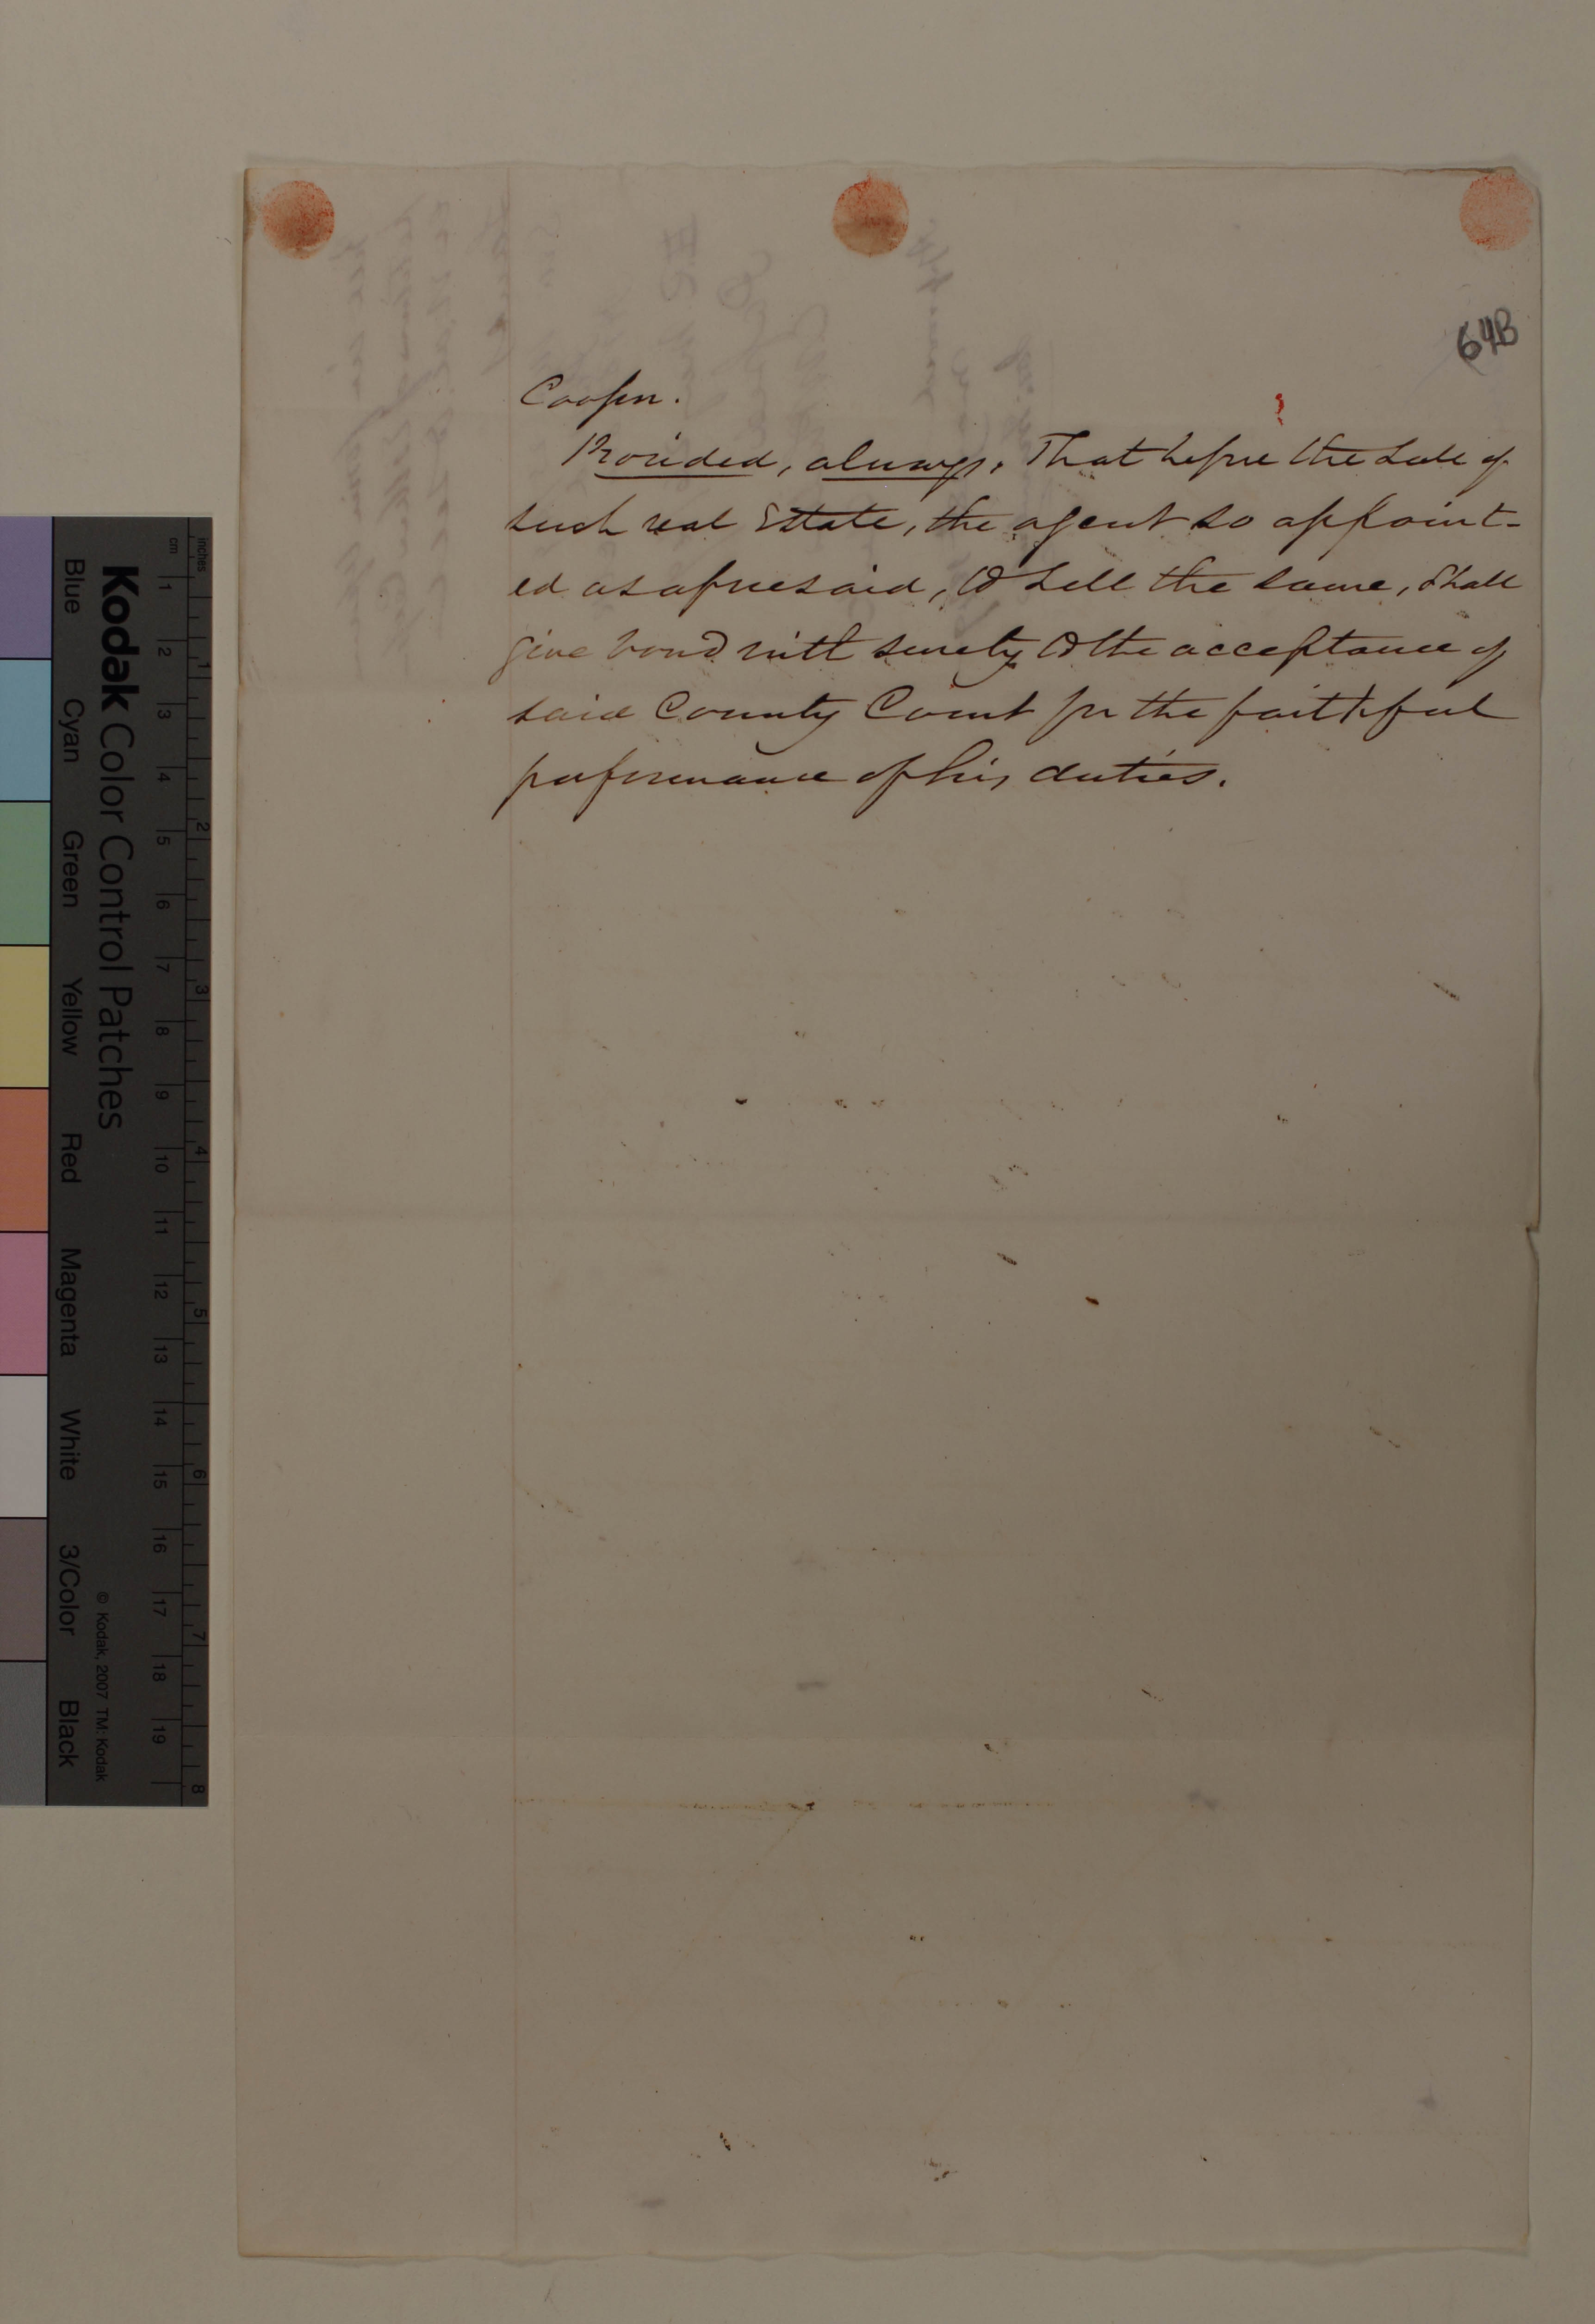 64B
Cooper.
Provided, always, That before the Sale of
such real Estate, the agent so appoint-
ed as aforesaid, to sell the same, shall
give bond with surety to the acceptance of
said County Court for the faithful
performance of his duties.
inches
cm
1 2 3 4 5 6 7 8
1 2 3 4 5 6 7 8 9 10 11 12 13 14 15 16 17 18 19
Kodak Color Control Patches
© Kodak, 2007 TM: Kodak
Blue Cyan Green Yellow Red Magenta White 3/Color Black